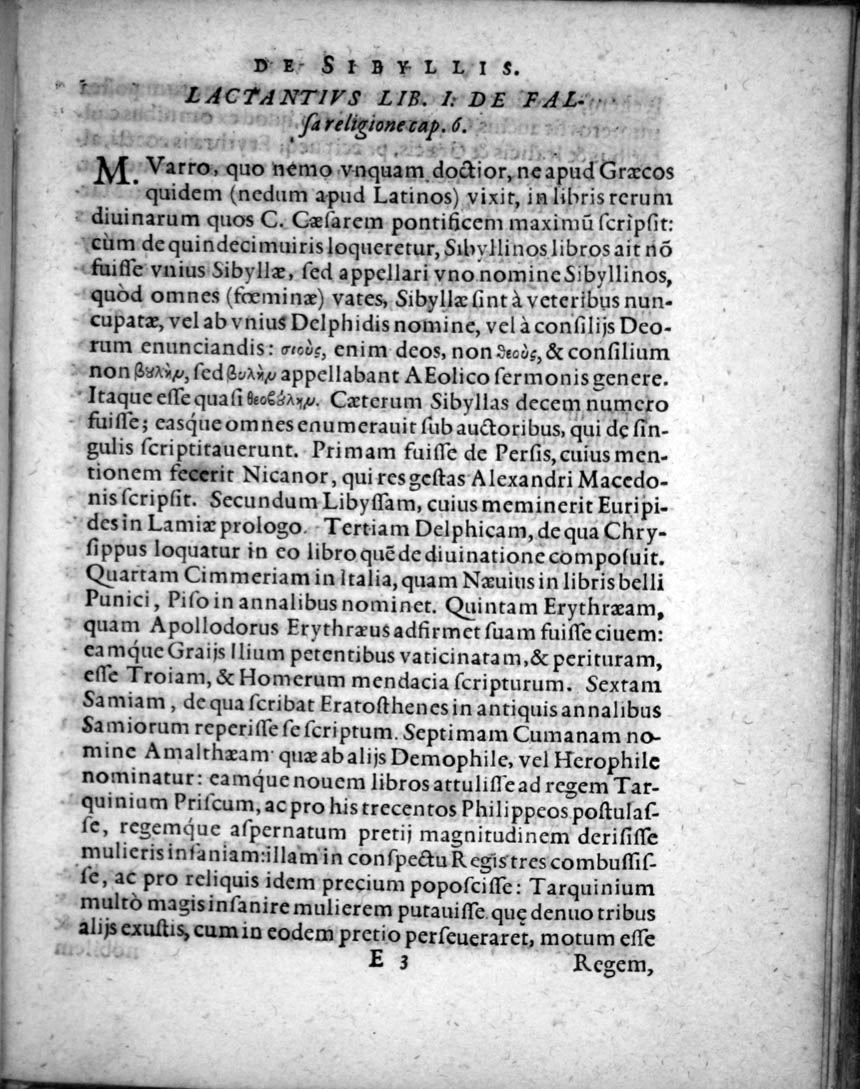 DE SIBYLLIS.
LACTANTIVS LIB. I. DE FAL-
ſa religione cap. 6.
M. Varro, quo nemo vnquam doctior, ne apud Græcos
quidem (nedum apud Latinos) vixit, in libris rerum
diuinarum quos C. Cæſarem pontificem maximū ſcripſit:
cùm de quindecimuiris loqueretur, Sibyllinos libros ait nō
fuiſſe vnius Sibyllæ, ſed appellari vno nomine Sibyllinos,
quòd omnes (fœminæ) vates, Sibyllæ ſint à veteribus nun-
cupatæ, vel ab vnius Delphidis nomine, vel à conſilijs Deo-
rum enunciandis: σιοὺς, enim deos, non θεοὺς, & conſilium
non βουλὴν, ſed βυλὴν appellabant AEolico ſermonis genere.
Itaque eſſe quaſi θεοβούλην. Cæterum Sibyllas decem numero
fuiſſe; easq́ue omnes enumerauit ſub auctoribus, qui de ſin-
gulis ſcriptitauerunt. Primam fuiſſe de Perſis, cuius men-
tionem fecerit Nicanor, qui res geſtas Alexandri Macedo-
nis ſcripſit. Secundum Libyſſam, cuius meminerit Euripi-
des in Lamiæ prologo. Tertiam Delphicam, de qua Chry-
ſippus loquatur in eo libro quē de diuinatione compoſuit.
Quartam Cimmeriam in Italia, quam Næuius in libris belli
Punici, Piſo in annalibus nominet. Quintam Erythræam,
quam Apollodorus Erythræus adfirmet ſuam fuiſſe ciuem:
eamq́ue Graijs Ilium petentibus vaticinatam, & perituram,
eſſe Troiam, & Homerum mendacia ſcripturum. Sextam
Samiam, de qua ſcribat Eratoſthenes in antiquis annalibus
Samiorum reperiſſe ſe ſcriptum. Septimam Cumanam no-
mine Amalthæam quæ ab alijs Demophile, vel Herophile
nominatur: eamq́ue nouem libros attuliſſe ad regem Tar-
quinium Priſcum, ac pro his trecentos Philippeos poſtulaſ-
ſe, regemq́ue aſpernatum pretij magnitudinem deriſiſſe
mulieris inſaniam: illam in conſpectu Regis tres combuſſiſ-
ſe, ac pro reliquis idem precium popoſciſſe: Tarquinium
multò magis inſanire mulierem putauiſſe. quę denuo tribus
alijs exuſtis, cum in eodem pretio perſeueraret, motum eſſe
E 3 Regem,